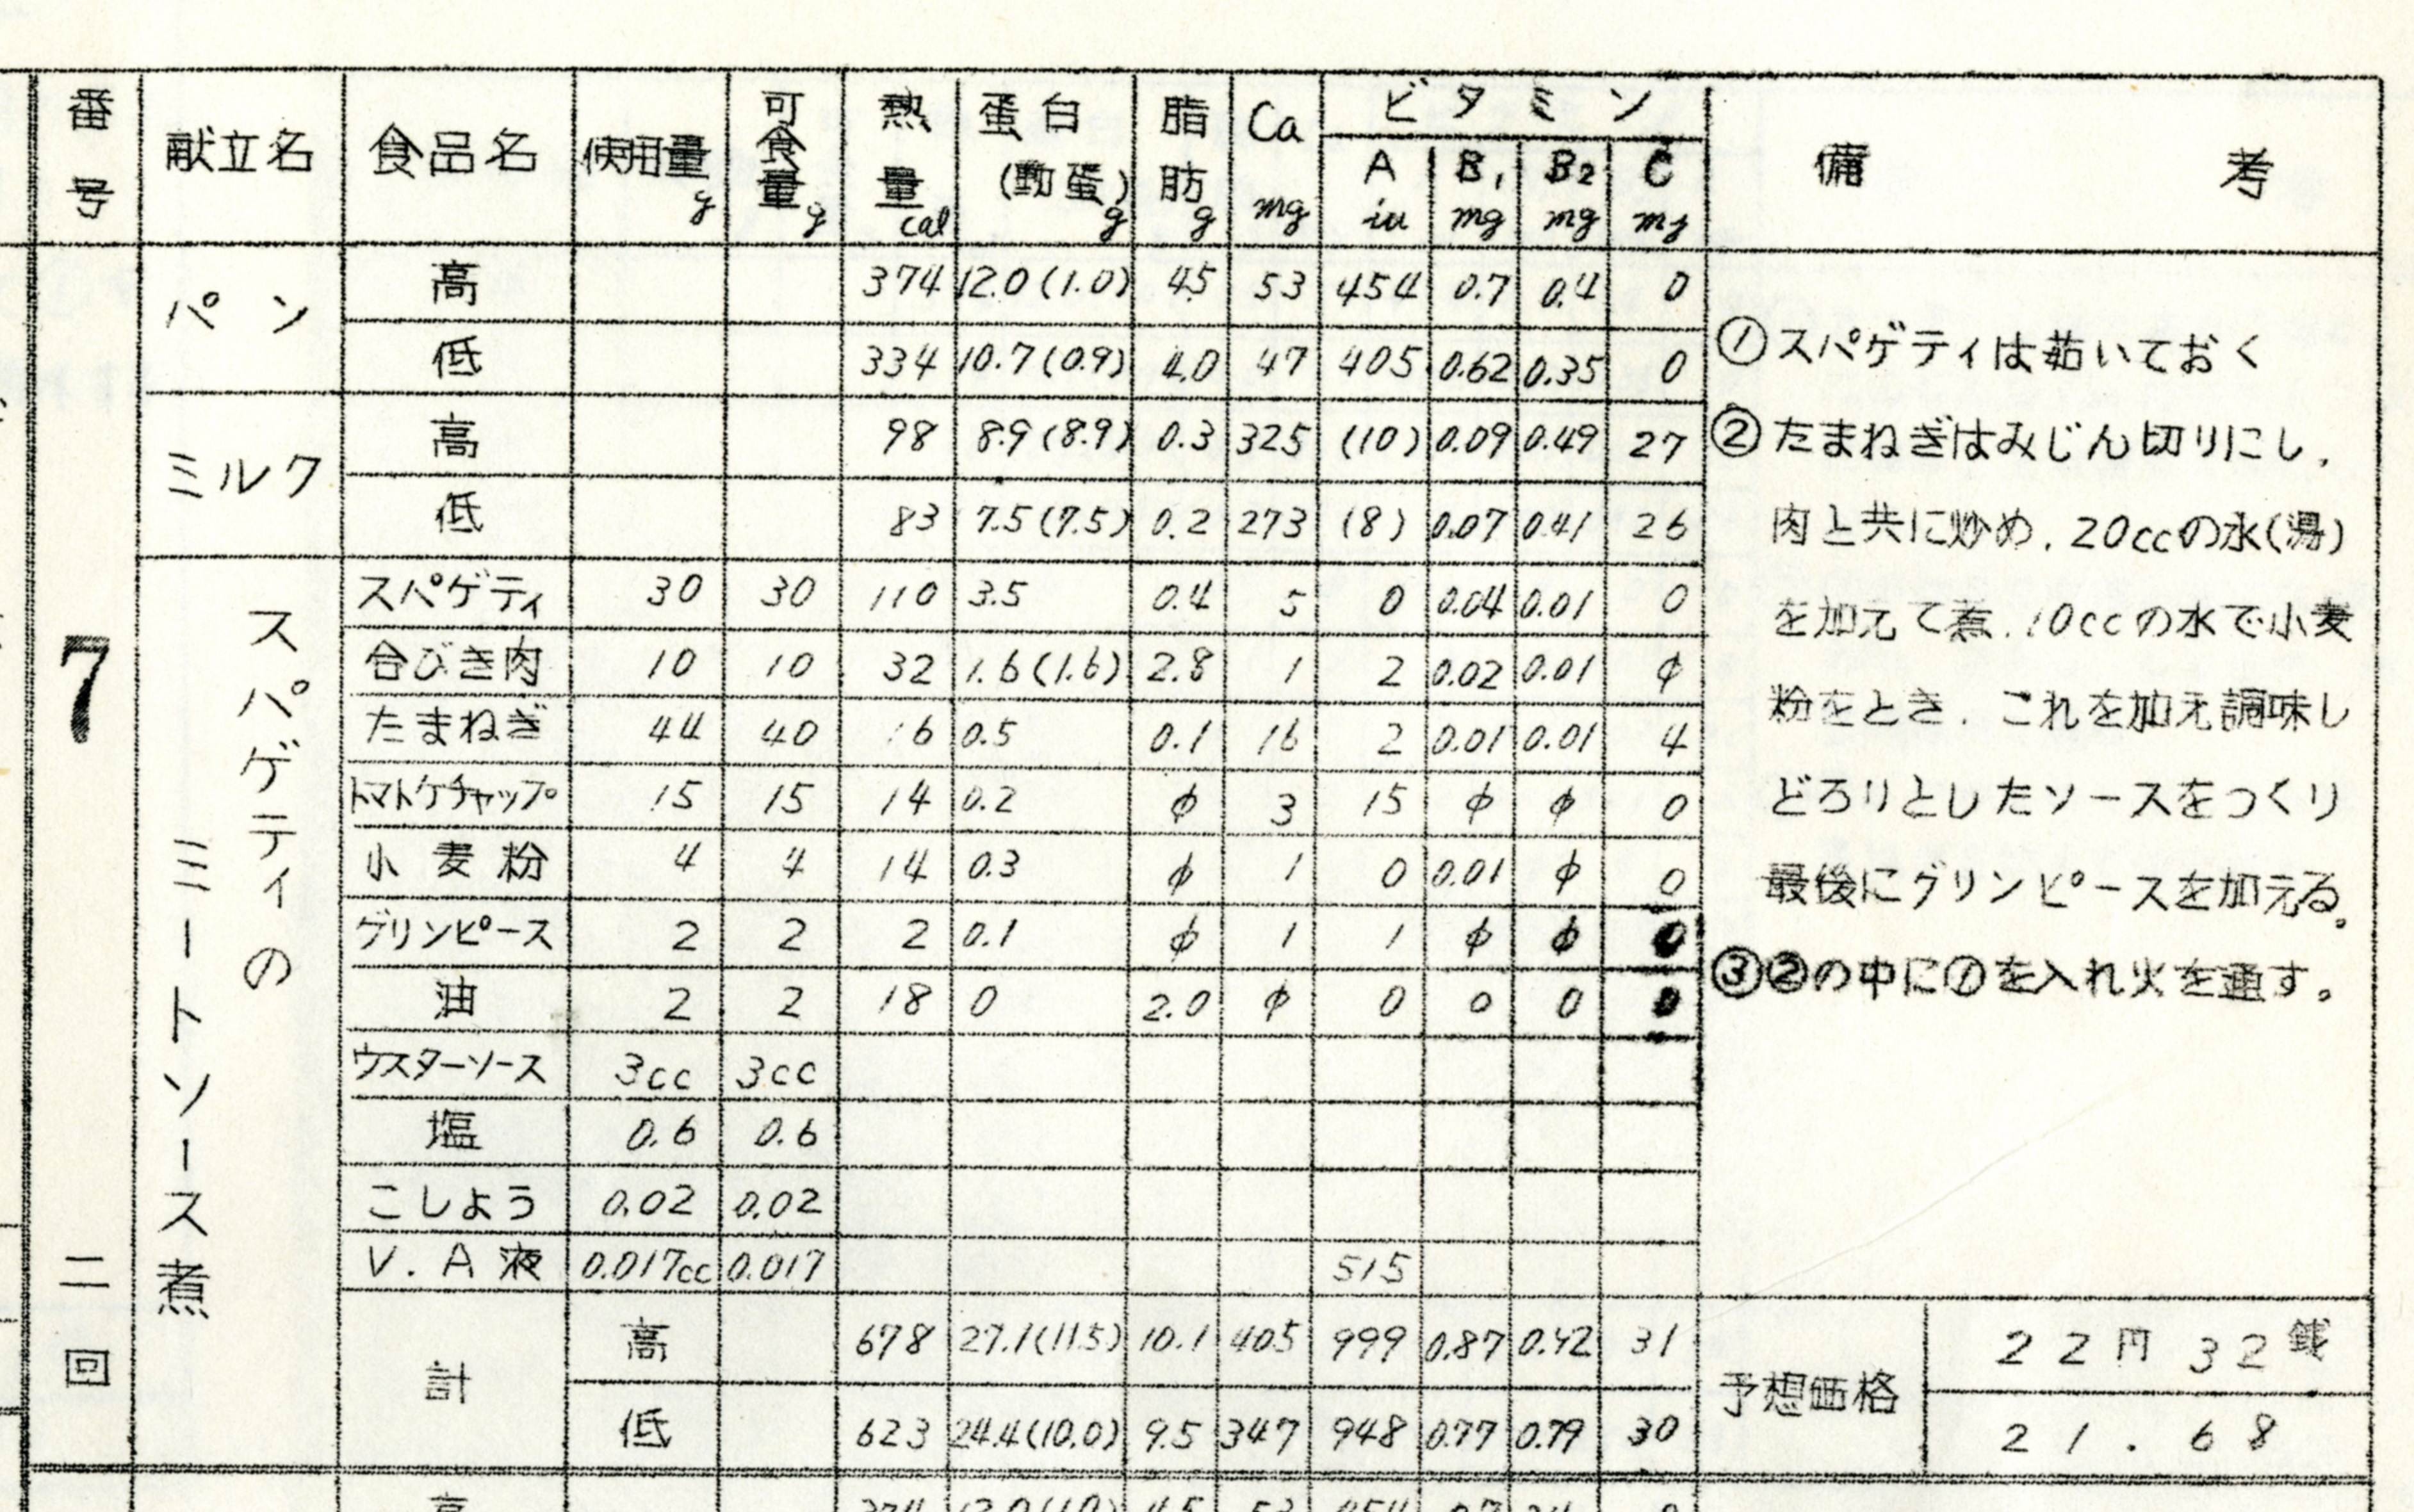 番号 献立名 食品名 使用量g 可食量g 熱量cal 蛋白(動蛋)g 脂肪g Ca mg ビタミン A iu B₁ mg B₂ mg C mg 備考
7 二回
パン 高 374 12.0(1.0) 4.5 53 454 0.7 0.4 0
低 334 10.7(0.9) 4.0 47 405 0.62 0.35 0
ミルク 高 98 8.9(8.9) 0.3 325 (10) 0.09 0.49 27
低 83 7.5(7.5) 0.2 273 (8) 0.07 0.41 26
スパゲティの
ミートソース煮
スパゲティ 30 30 110 3.5 0.4 5 0 0.04 0.01 0
合びき肉 10 10 32 1.6(1.6) 2.8 1 2 0.02 0.01 φ
たまねぎ 44 40 16 0.5 0.1 16 2 0.01 0.01 4
トマトケチャップ 15 15 14 0.2 φ 3 15 φ φ 0
小麦粉 4 4 14 0.3 φ 1 0 0.01 φ 0
グリンピース 2 2 2 0.1 φ 1 1 φ φ 0
油 2 2 18 0 2.0 φ 0 0 0 0
ウスターソース 3cc 3cc
塩 0.6 0.6
こしょう 0.02 0.02
V.A液 0.017cc 0.017 515
計 高 678 27.1(11.5) 10.1 405 999 0.87 0.92 31
低 623 24.4(10.0) 9.5 347 948 0.77 0.79 30
①スパゲティは茹いておく
②たまねぎはみじん切りにし.
肉と共に炒め.20ccの水(湯)
を加えて煮.10ccの水で小麦
粉をとき.これを加え調味し
どろりとしたソースをつくり
最後にグリンピースを加える。
③②の中に①を入れ火を通す。
予想価格 22円32銭
21.68
高 374 12.0(1.0) 4.5 53 454 0.7